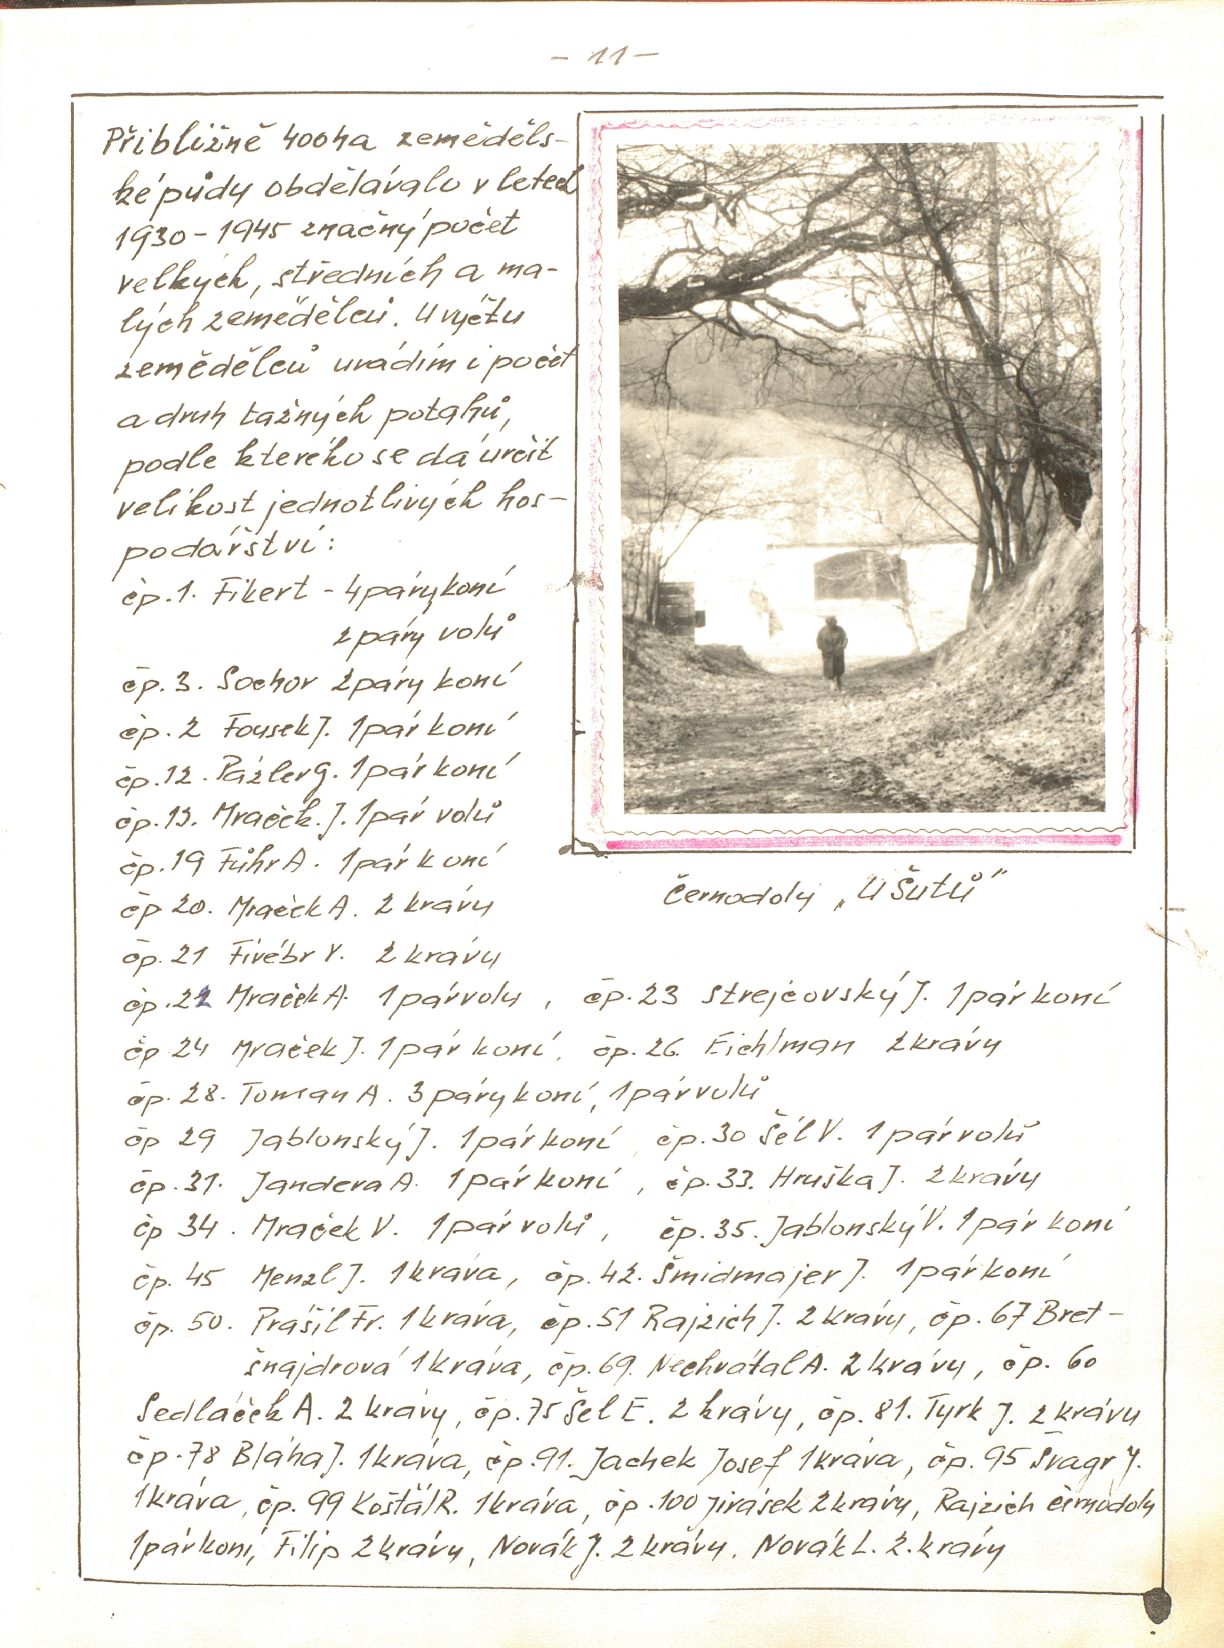 - 11 -
Přibližně 400ha zeměděls-
ké půdy obdělávalo v letech
1930 - 1945 značný počet
velkých, středních a ma-
lých zemědělců. U výčtu
zemědělců uvádím i počet
a druh tažných potahů,
podle kterého se dá určit
velikost jednotlivých hos-
podářství:
čp. 1. Fikert - 4 páry koní
2 páry volů
čp. 3. Sochor 2 páry koní
čp. 2 Fousek J. 1 pár koní
čp. 12. Pázler G. 1 pár koní
čp. 13. Mraček. J. 1 pár volů
čp. 19 Führ A. 1 pár koní
čp. 20. Mraček A. 2 krávy
čp. 21 Firébr V. 2 krávy
Černodoly „U Šutů"
čp. 22 Mraček A. 1 pár volů, čp. 23 Strejčovský J. 1 pár koní
čp 24 Mraček J. 1 pár koní, čp. 26. Eichlman 2 krávy
čp. 28. Toman A. 3 páry koní, 1 pár volů
čp 29 Jablonský J. 1 pár koní, čp. 30 Šél V. 1 pár volů
čp. 31. Jandera A. 1 pár koní, čp. 33. Hruška J. 2 krávy
čp 34. Mraček V. 1 pár volů, čp. 35. Jablonský V. 1 pár koní
čp. 45 Menzl J. 1 kráva, čp. 42. Šmidmajer J. 1 pár koní
čp. 50. Prášil Fr. 1 kráva, čp. 51 Rajzich J. 2 krávy, čp. 67 Bret-
šnajdrová 1 kráva, čp. 69. Nechvátal A. 2 krávy, čp. 60
Sedláček A. 2 krávy, čp. 75 Šel E. 2 krávy, čp. 81. Tyrk J. 2 krávy
čp. 78 Bláha J. 1 kráva, čp. 91. Jachek Josef 1 kráva, čp. 95 Švagr J.
1 kráva, čp. 99 Košťál R. 1 kráva, čp. 100 Jirásek 2 krávy, Rajzich černodoly
1 pár koní, Filip 2 krávy, Novák J. 2 krávy. Novák L. 2. krávy